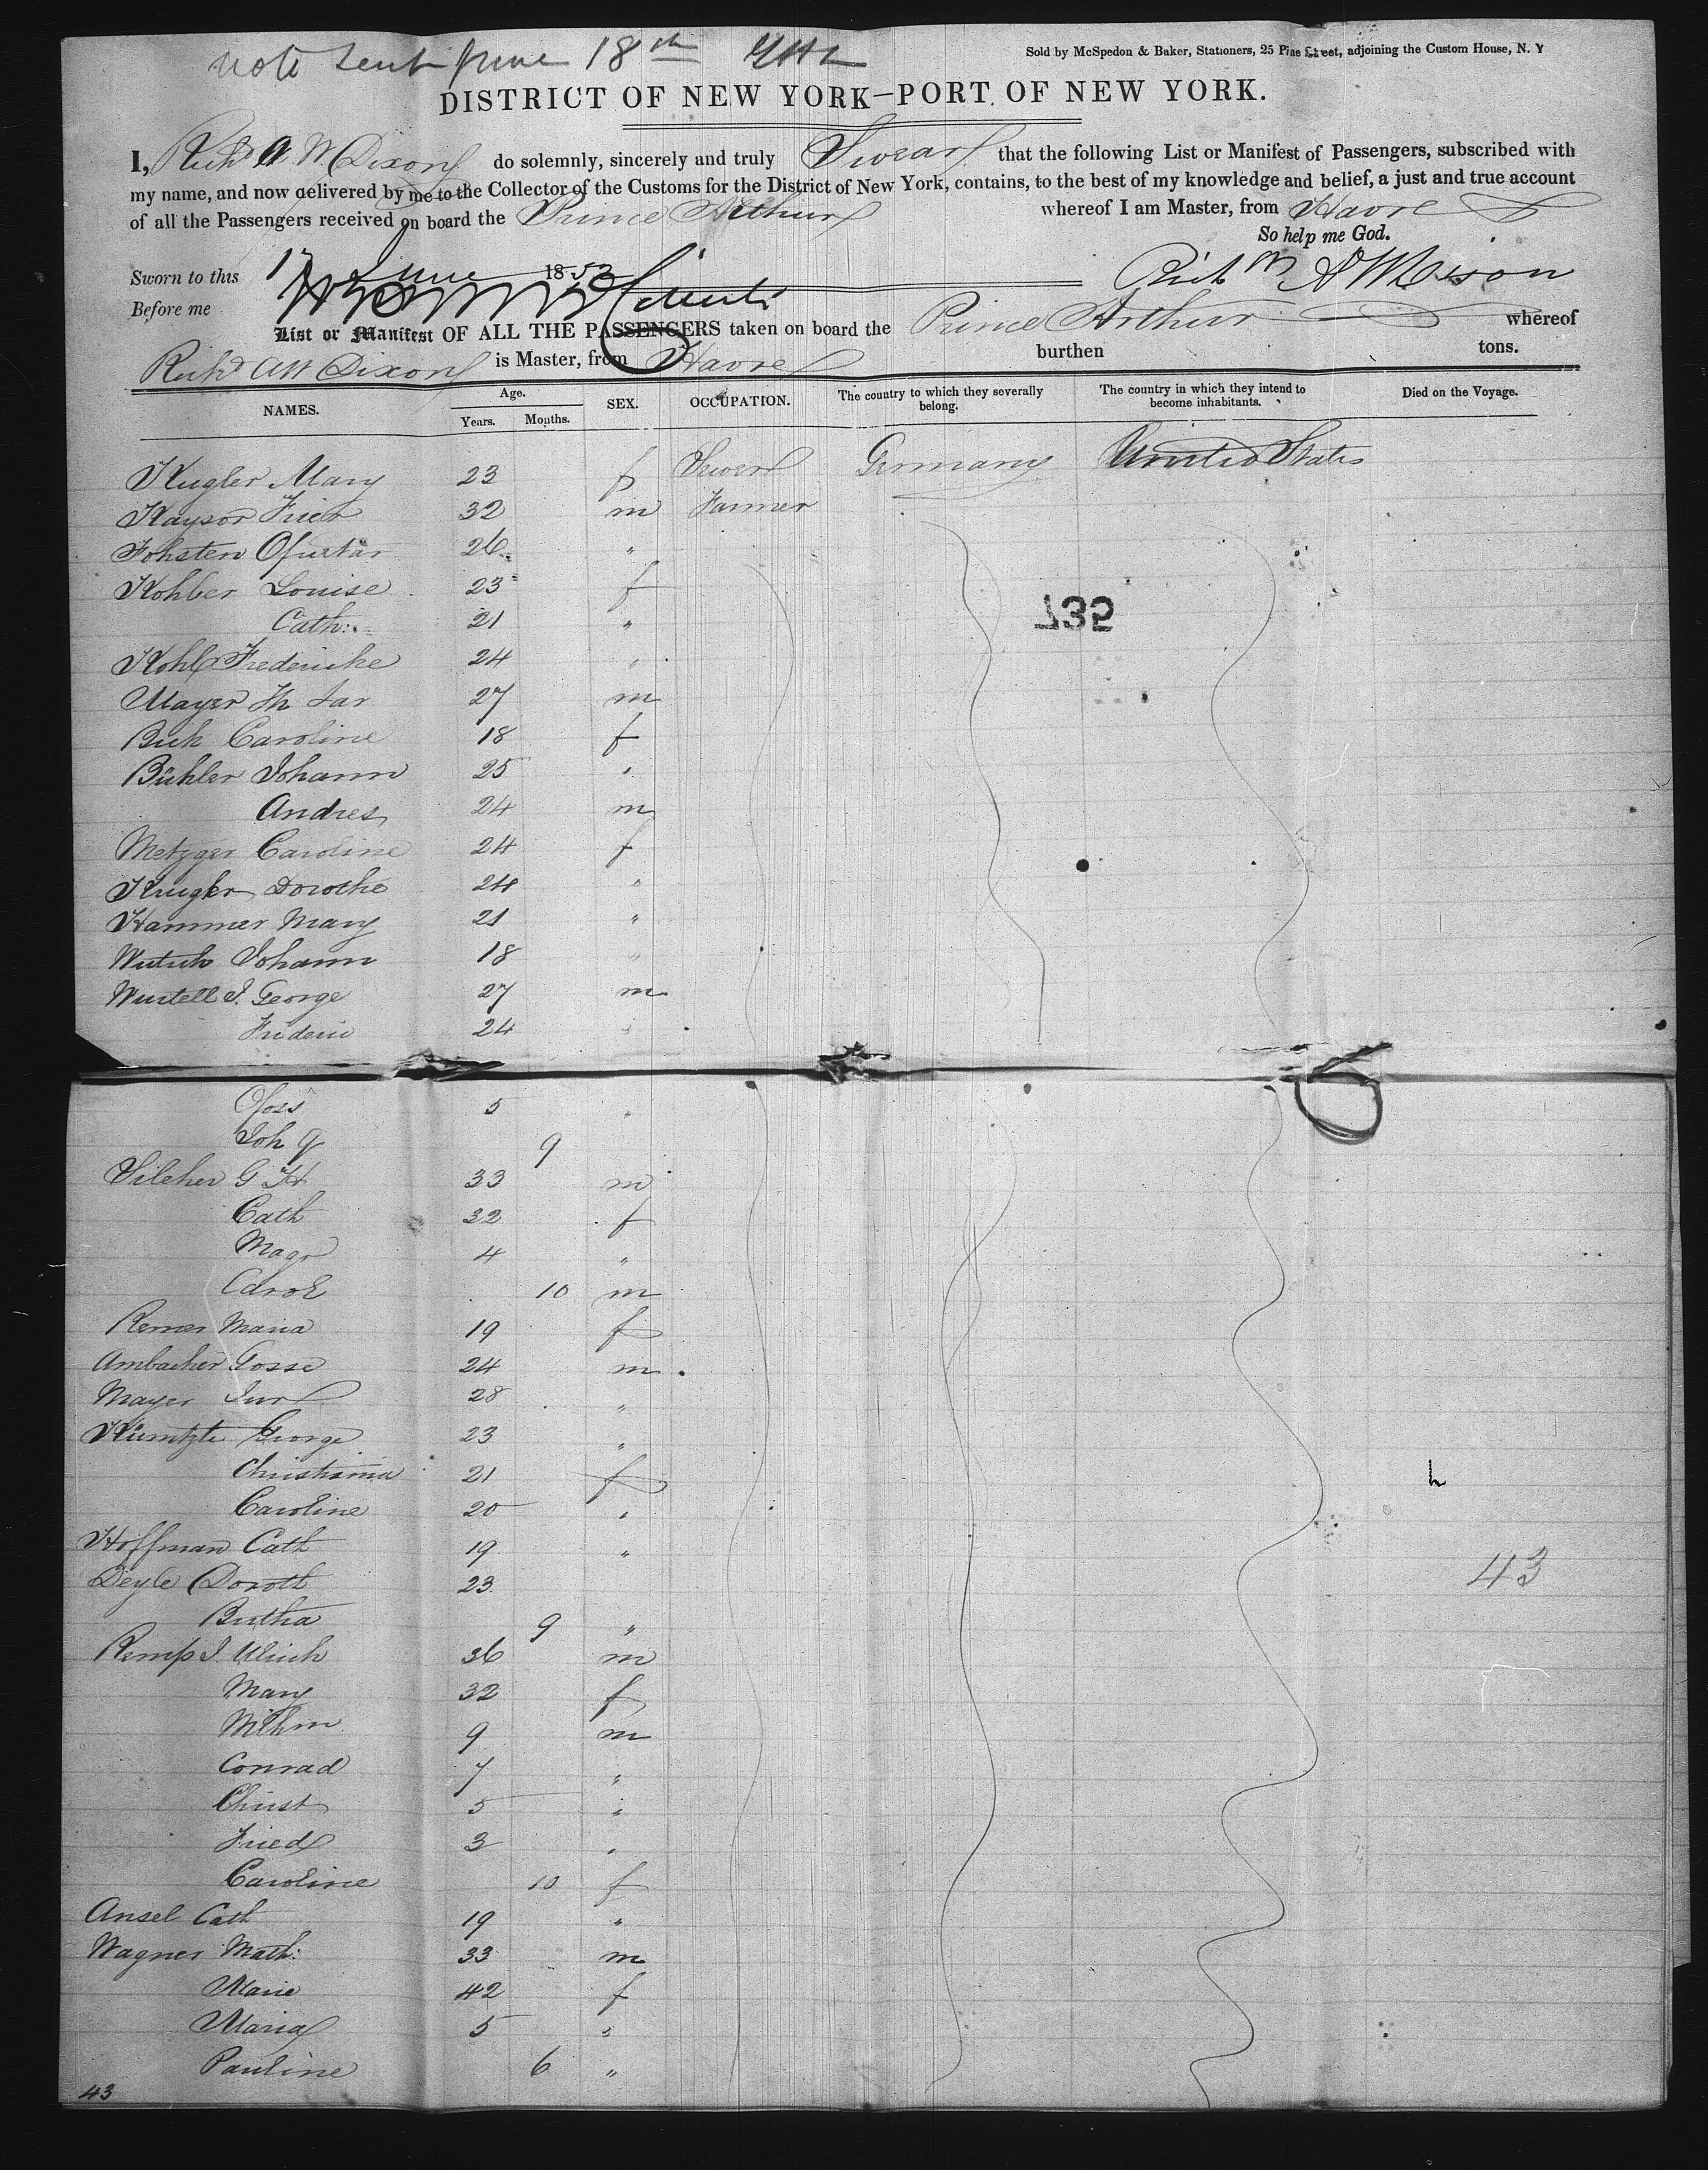 note sent June 18th
Sold by McSpedon & Baker, Stationers, 25 Pine Street, adjoining the Custom House, N. Y
DISTRICT OF NEW YORK—PORT OF NEW YORK.
I, Richd A W Dixon do solemnly, sincerely and truly Swear that the following List or Manifest of Passengers, subscribed with
my name, and now delivered by me to the Collector of the Customs for the District of New York, contains, to the best of my knowledge and belief, a just and true account
of all the Passengers received on board the Prince Arthur whereof I am Master, from Havre
So help me God.
Sworn to this 17 June 1853
Before me
List or Manifest OF ALL THE PASSENGERS taken on board the Prince Arthur whereof
Richd A W Dixon is Master, from Havre burthen tons.
NAMES. Age. Years. Months. SEX. OCCUPATION. The country to which they severally belong. The country in which they intend to become inhabitants. Died on the Voyage.
Kugler Mary 23 f Germany United States
Kaysor Frier 32 m Farmer
Fohsten 26 "
Kohler Louise 23 f
Cath: 21 "
735
Kohl Fredericke 24 "
Mayer 27 m
Bick Caroline 18 f
Bühler Johann 25 "
Andres 24 m
Metzger Caroline 24 f
Krugler Dorothe 24 "
Hammer Mary 21 "
Johann 18 "
Wurtell J. George 27 m
Frideric 24 "
5 "
Joh G 9
Silcher G H 33 m
Cath 32 f
Magr 4 "
Carol 10 m
Remer Maria 19 f
Ambacher Gosse 24 m
Mayer 28 "
Kuentzte George 23 "
Christiania 21 f
Caroline 20 "
Hoffman Cath 19 "
43
Deyle Doroth 23
Bertha 9 "
Kemp J. Ulrich 36 m
Mary 32 f
Wilhm 9 m
Conrad 7 "
Christ 5 "
Fried 3 "
Caroline 10 f
Ansel Cath 19 "
Wagner Math: 33 m
Marie 42 f
Maria 5 "
Pauline 6 "
43